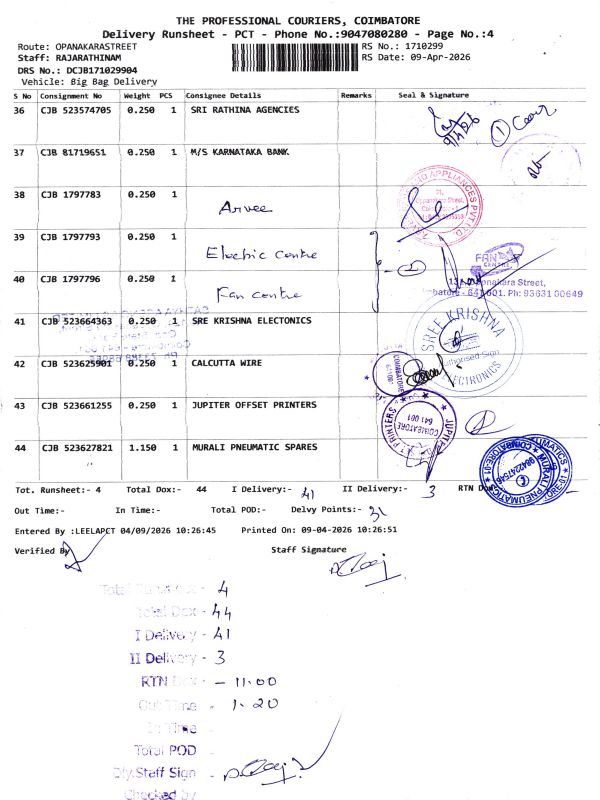 THE PROFESSIONAL COURIERS, COIMBATORE
Delivery Runsheet - PCT - Phone No.:9047080280 - Page No.:4
Route: OPANAKARASTREET RS No.: 1710299
Staff: RAJARATHINAM RS Date: 09-Apr-2026
DRS No.: DCJB171029904
Vehicle: Big Bag Delivery
S No Consignment No Weight PCS Consignee Details Remarks Seal & Signature
36 CJB 523574705 0.250 1 SRI RATHINA AGENCIES
37 CJB 81719651 0.250 1 M/S KARNATAKA BANK
38 CJB 1797783 0.250 1 Arvee
39 CJB 1797793 0.250 1 Electric Centre
40 CJB 1797796 0.250 1 Fan centre
FAN CENTRE
Ph: 93631 00649
41 CJB 523664363 0.250 1 SRE KRISHNA ELECTONICS
SREE KRISHNA ELECTRONICS
Authorised Sign
42 CJB 523625901 0.250 1 CALCUTTA WIRE
COIMBATORE
43 CJB 523661255 0.250 1 JUPITER OFFSET PRINTERS
COIMBATORE
641 001
44 CJB 523627821 1.150 1 MURALI PNEUMATIC SPARES
Tot. Runsheet:- 4 Total Dox:- 44 I Delivery:- 41 II Delivery:- 3 RTN Dox:-
Out Time:- In Time:- Total POD:- Delvy Points:- 31
Entered By :LEELAPCT 04/09/2026 10:26:45 Printed On: 09-04-2026 10:26:51
Verified By Staff Signature
Total Runsheet - 4
Total Dox - 44
I Delivery - 41
II Delivery - 3
RTN Dox - 11.00
Out Time - 1.20
In Time -
Total POD -
Dly.Staff Sign -
Checked by